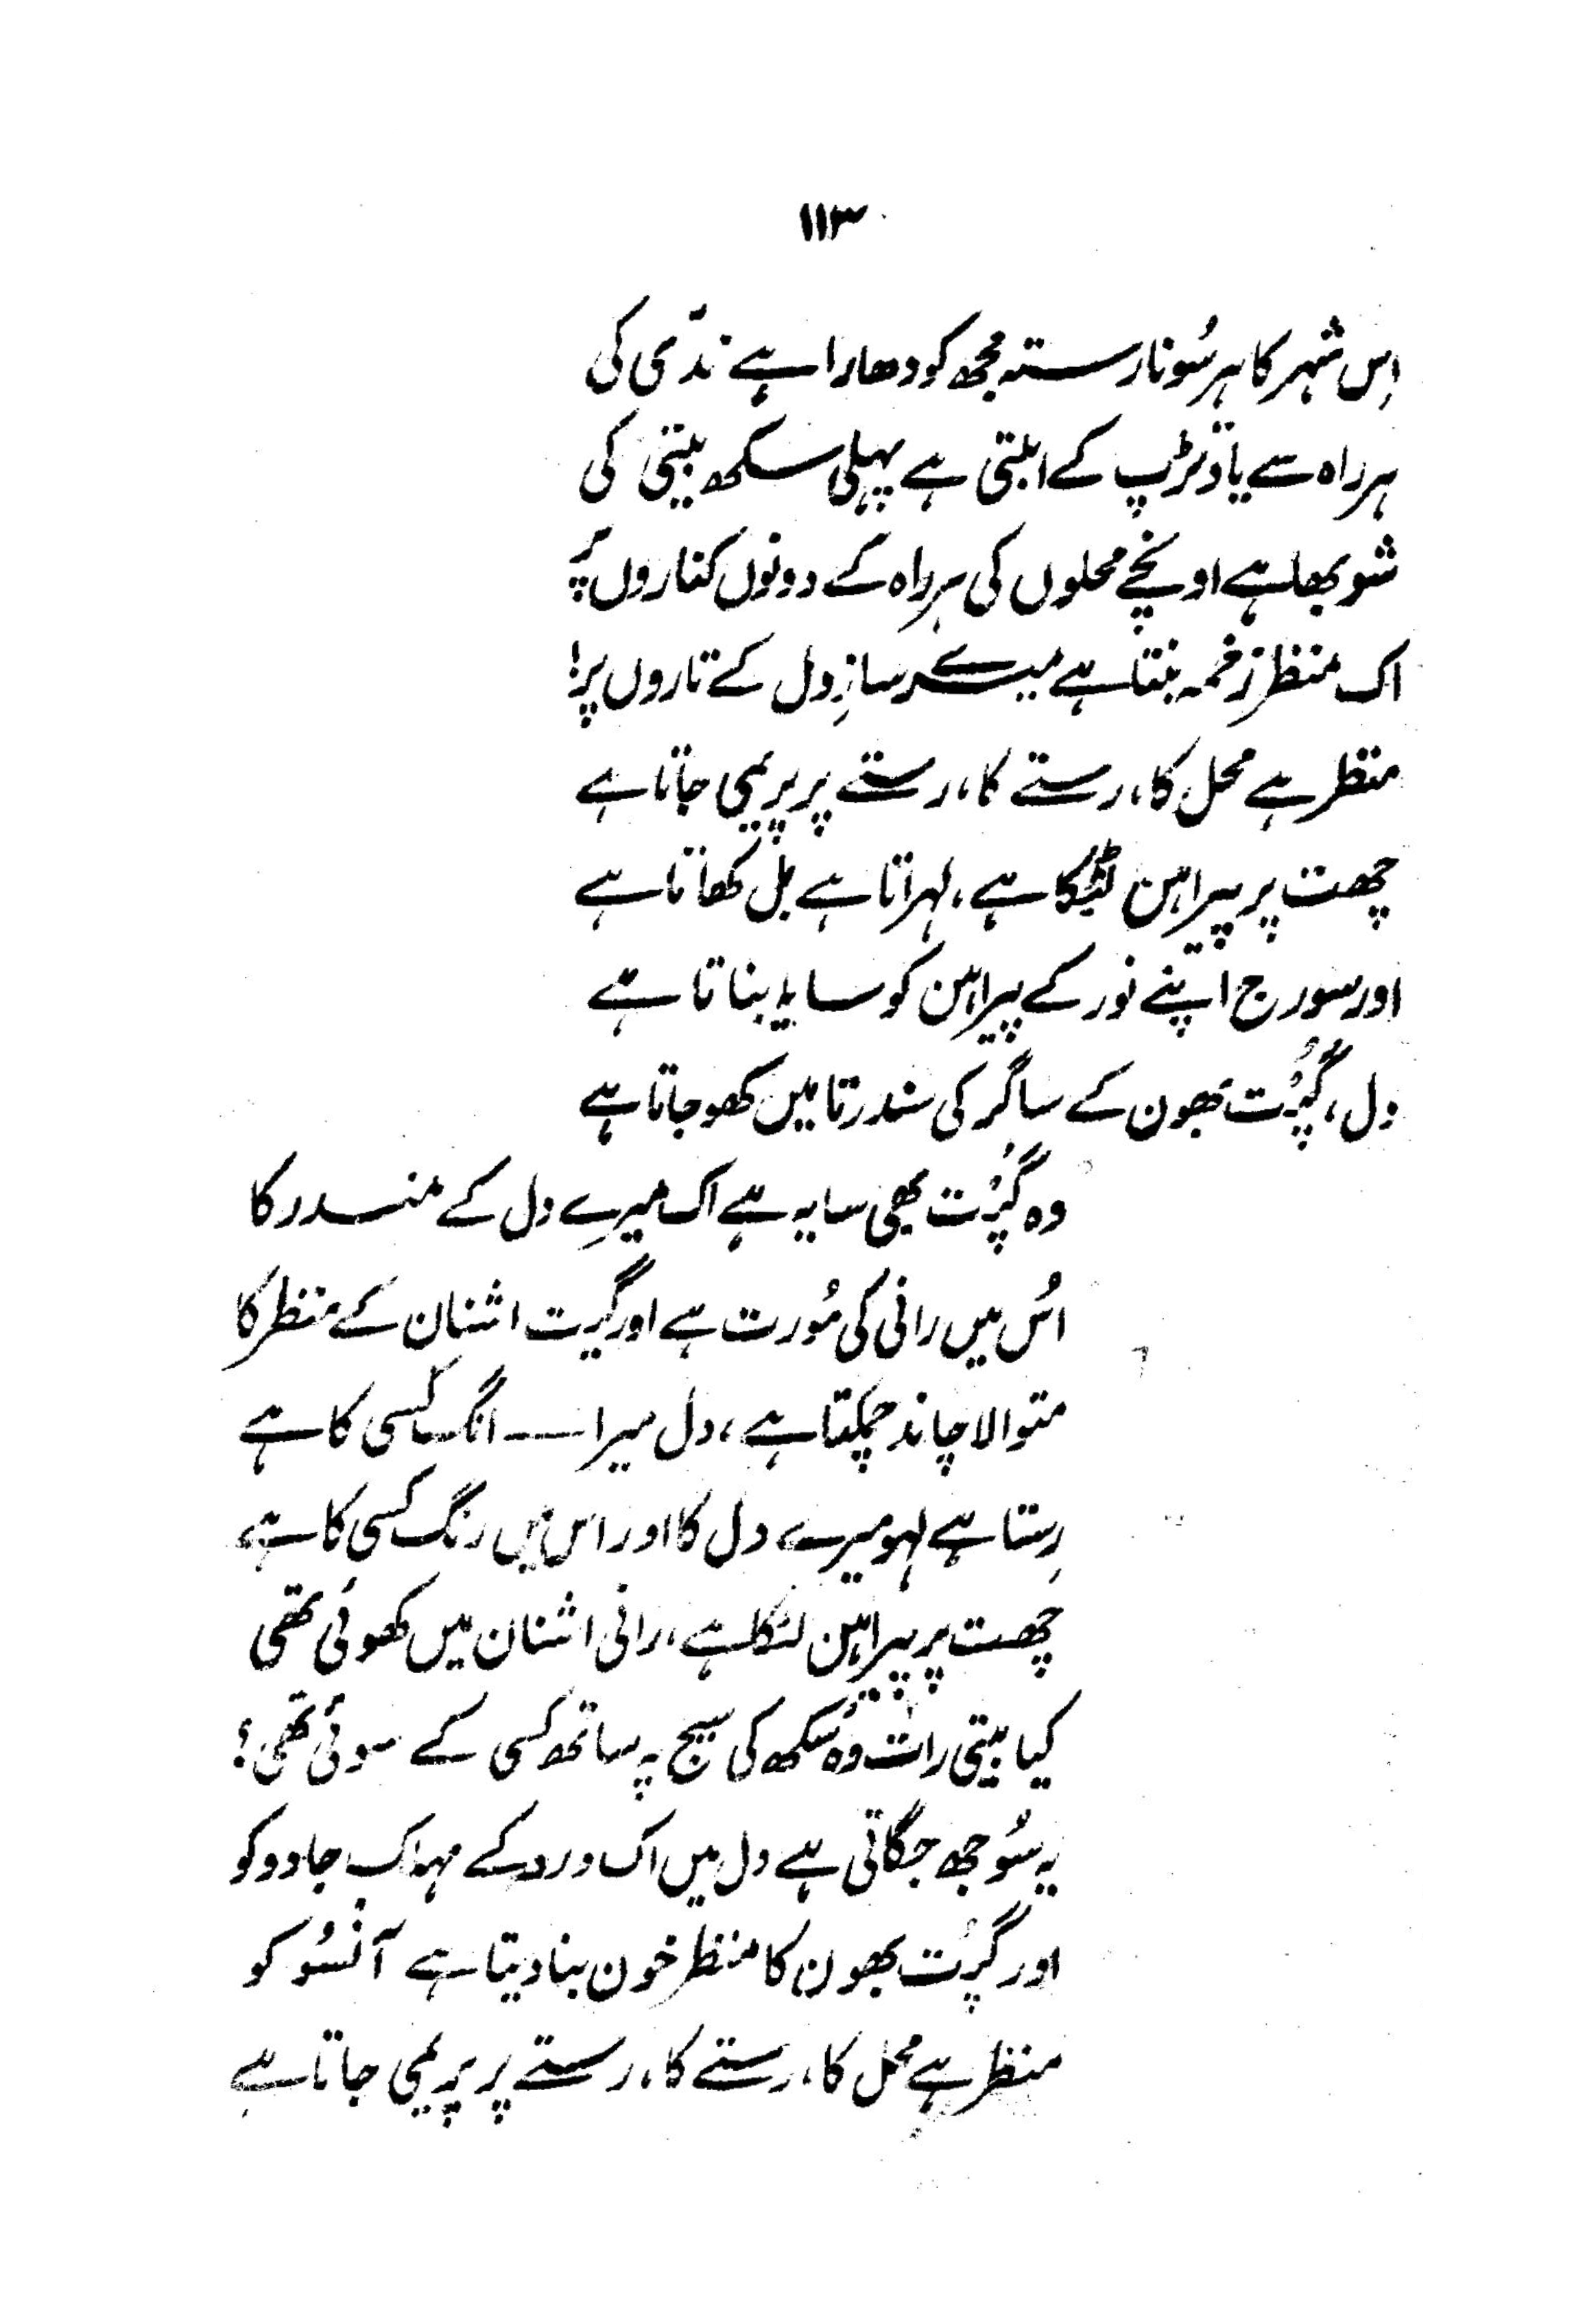 ۱۱۳
اِس شہر کا ہر سُونا رستہ مجھ کو دھارا ہے ندّی کی
ہر راہ سے یاد تڑپ کے ابلتی ہے پہلی سکھ بیتی کی
شوبھا ہے اونچے محلوں کی ہر راہ کے دونوں کناروں پر
اک منظر زخمہ بنتا ہے میرے سازِ دل کے تاروں پر!
منظر ہے محل کا، رستے کا، رستے پر پریمی جاتا ہے
چھت پر پیراہن لٹکا ہے، لہراتا ہے بل کھاتا ہے
اور سورج اپنے نور کے پیراہن کو سایا بناتا ہے
دل، گُپُت بھون کے ساگر کی سندرتا میں کھو جاتا ہے
وہ گپُت بھی سایہ ہے اک میرے دل کے مندر کا
اُس میں رانی کی مُورت ہے اور گیت اشنان کے منظر کا
متوالا چاند چمکتا ہے، دل میرا ـــ انگ کسی کا ہے
رِستا ہے لہو میرے دل کا اور اس میں رنگ کسی کا ہے
چھت پر پیراہن لٹکا ہے، رانی اشنان میں کھوئی تھی
کیا بیتی رات وہ سُکھ کی سیج پہ ساتھ کسی کے سوئی تھی؟
یہ سُوجھ جگاتی ہے دل میں اک درد کے مہلک جادو کو
اور گپُت بھون کا منظر خون بنا دیتا ہے آنسُو کو
منظر ہے محل کا، رستے کا، رستے پر پریمی جاتا ہے